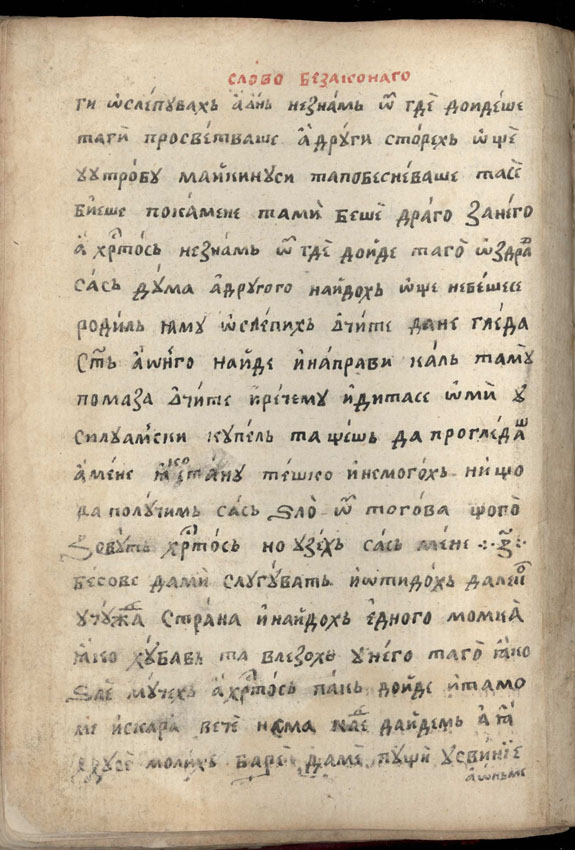 слово беꙁаконаго
ти ѡслепувахь а днь неꙁнамь ѿ где доидеше
таги просветваше а други сторехь ѡще
у утробу маикинуси тапобесневаше тасе
биеше покамене тами беше драго ꙁанего
а хртось неꙁнамь ѿ где доиде таго ѡꙁдра
сась дума адругого наидохь ѡще небешесе
родиль ѡслепихь ѻчите дане гледа
наиде инаправи каль таму
помаꙁа ѻчите иречему идитасе ѡми у
силуамски купель та щешь да прогледашь
амене тешко инемогохь нищо
да получимь сась ѕло ѿ тогова щого
ꙁовуть хртось но уꙁехь сась мене
бесове дами слугувать иѡтидохь далеко
у чужа страна инаидохь едного момка
ꙗко хубавь та влеꙁохь у него таго ꙗко
ѕле мучехь а хртось пакь доиде итамо
ме искара вете нама каде даидемь
молихь баре даме пущи усвиние
аѡньме